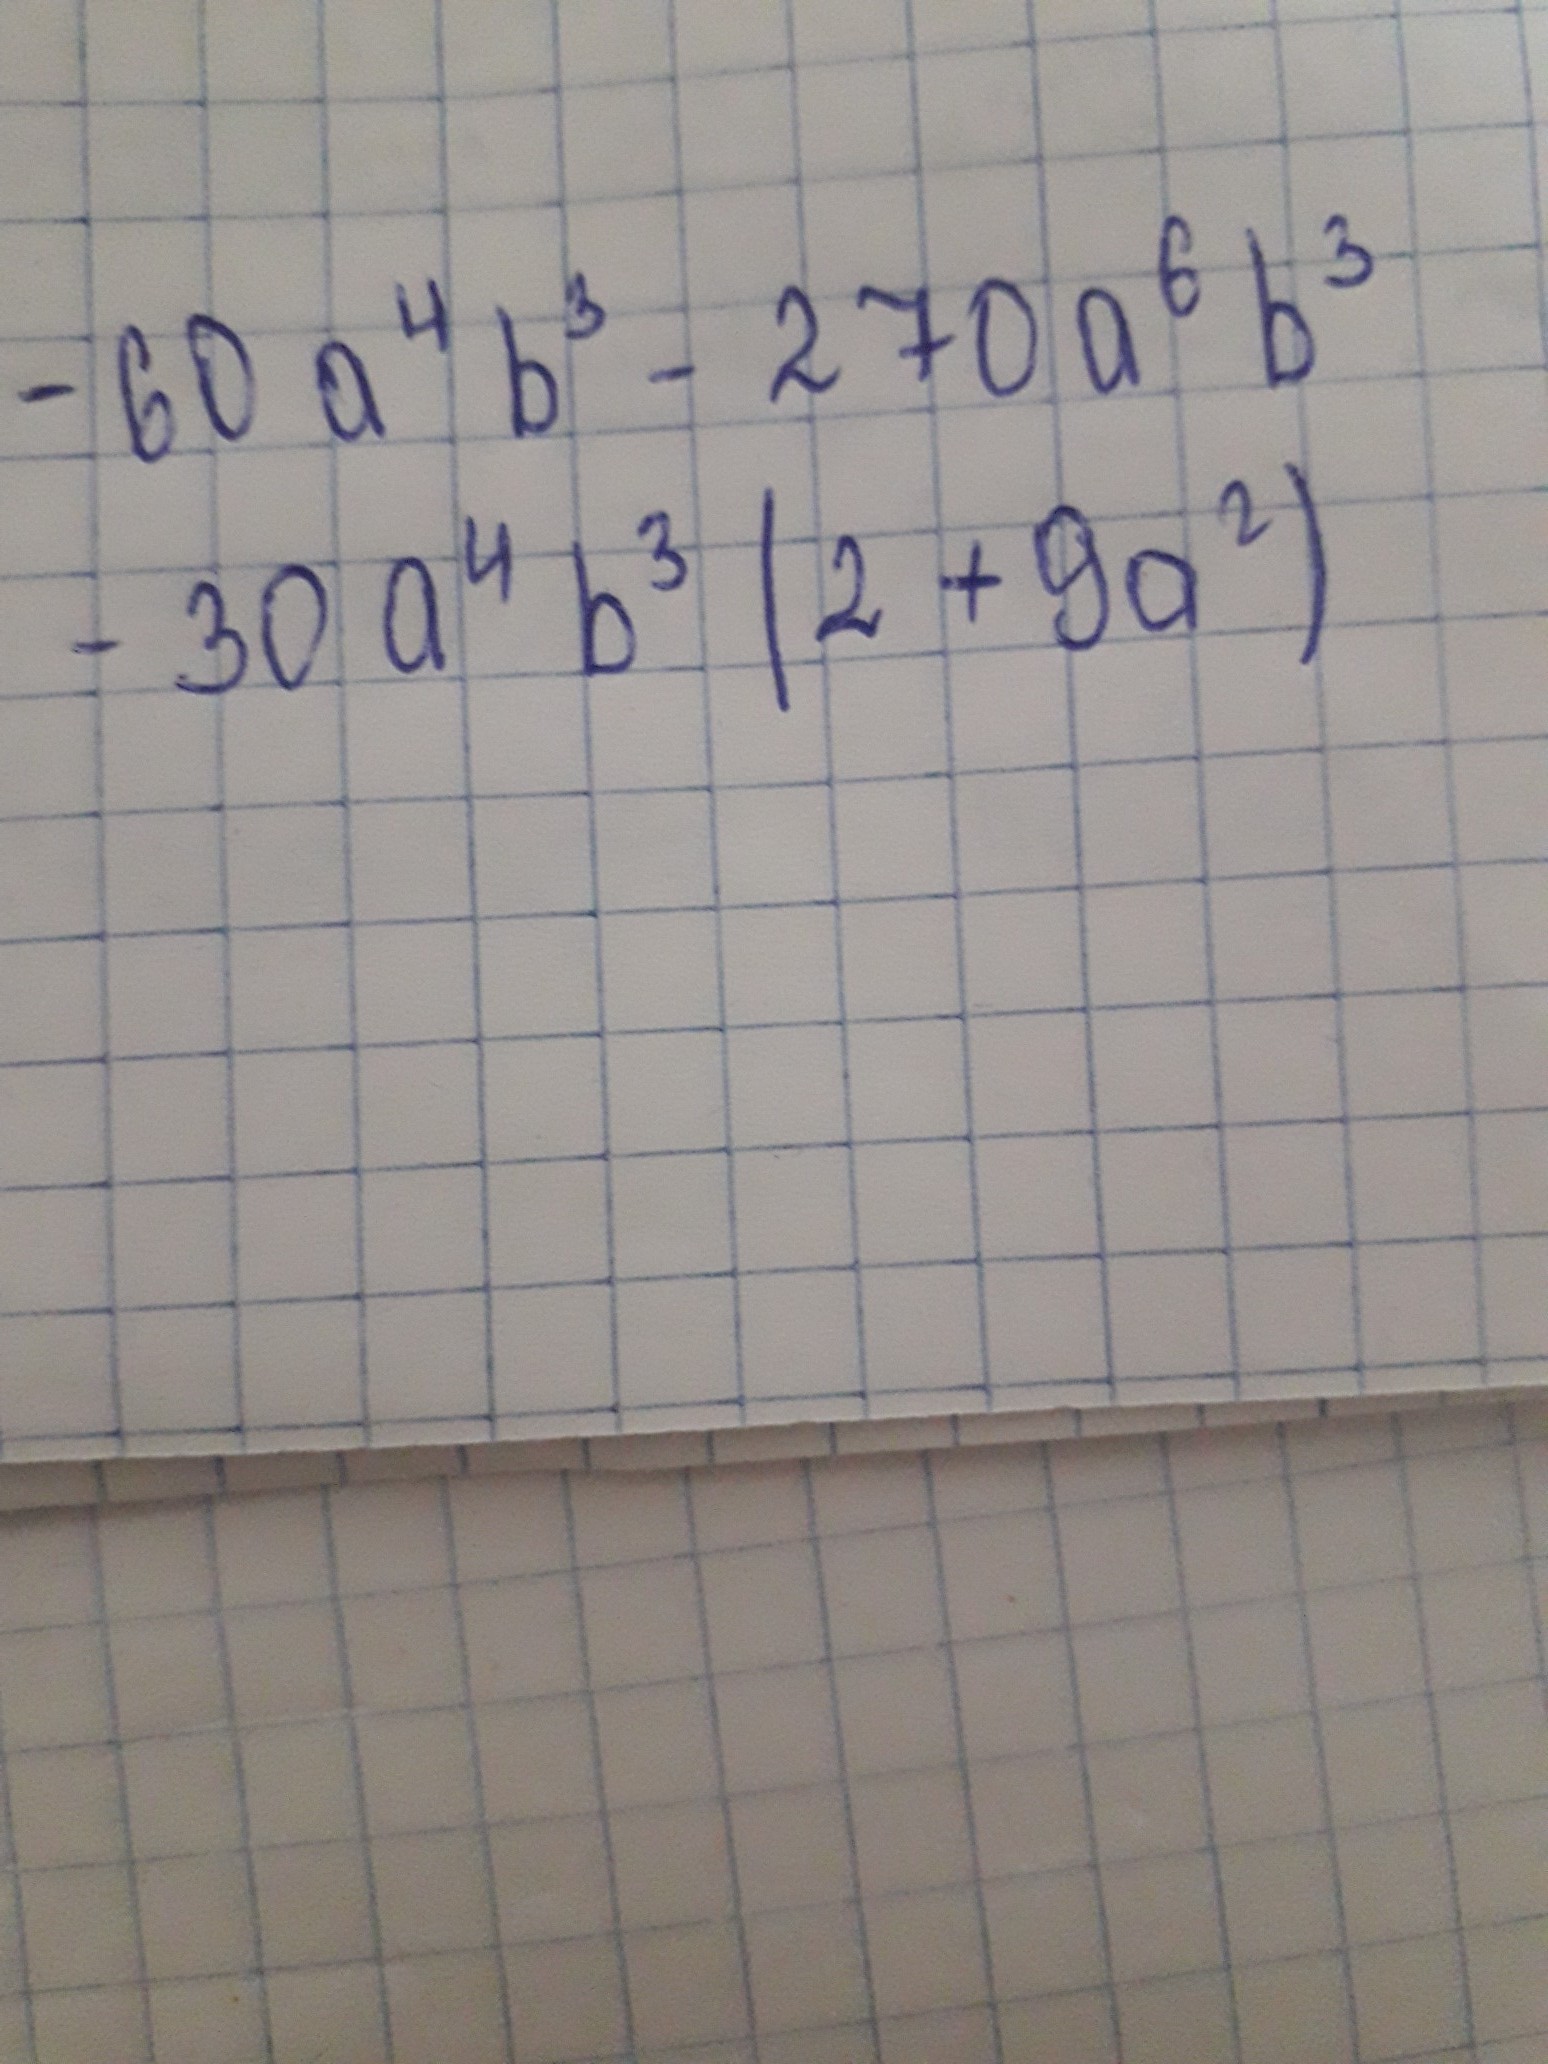 - 60 a⁴ b³ - 270 a⁶ b³
- 30 a⁴ b³ (2 + 9a²)